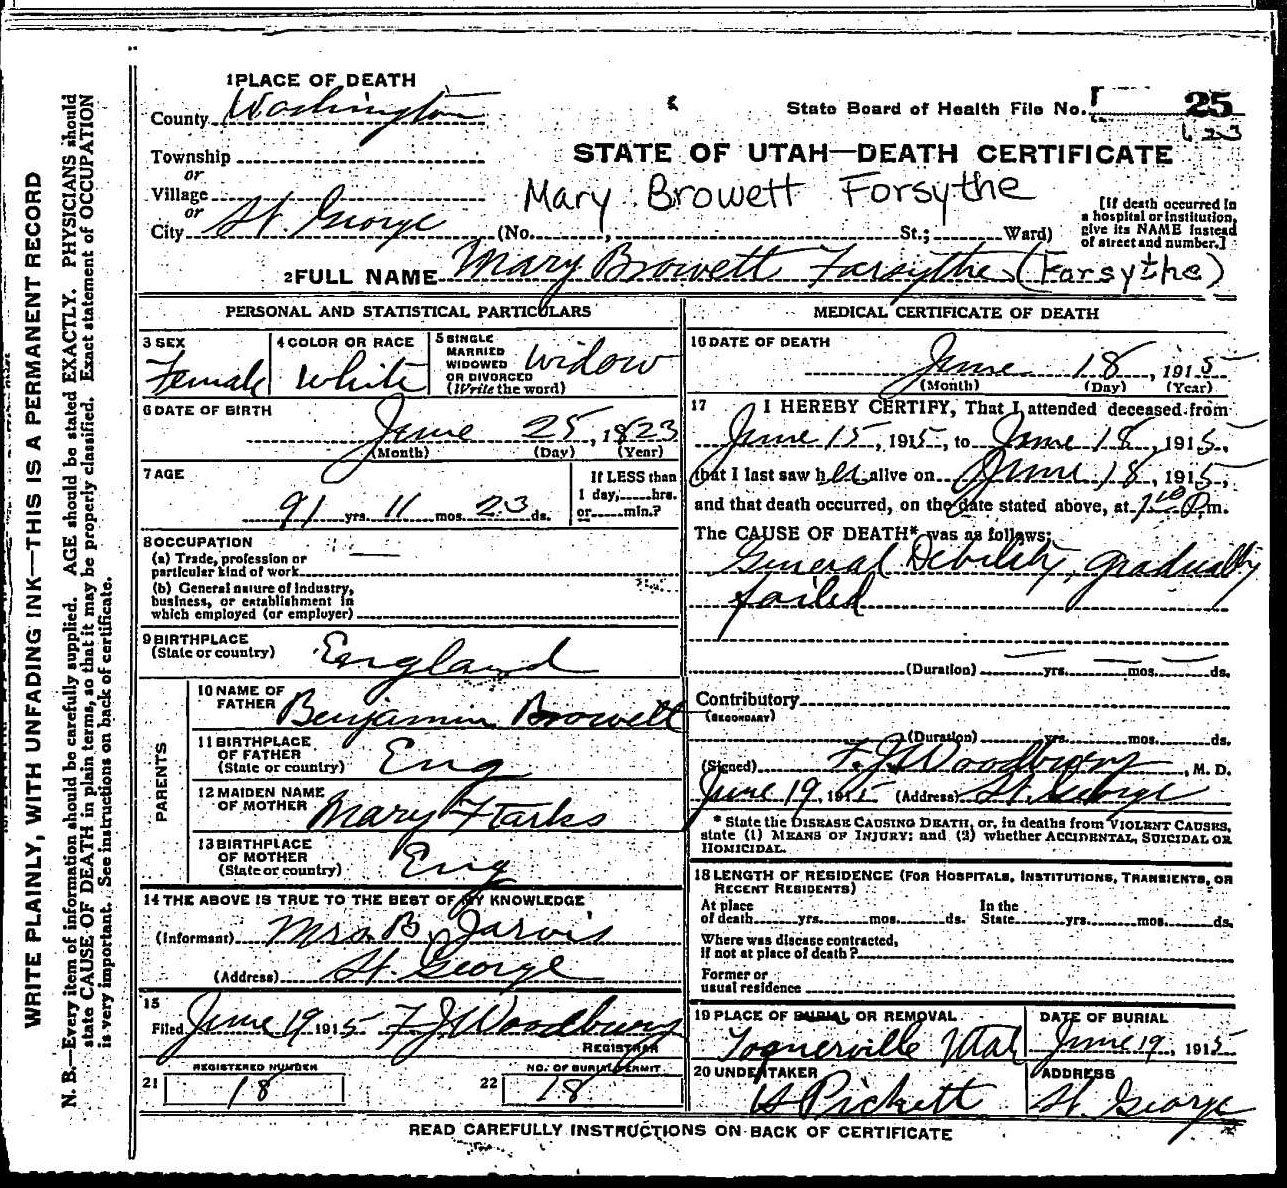 1 PLACE OF DEATH
County Washington
State Board of Health File No. 25
623
Township
or
Village
or
City St. George (No. , St.; Ward)
STATE OF UTAH—DEATH CERTIFICATE
Mary Browett Forsythe
[If death occurred in
a hospital or institution,
give its NAME instead
of street and number.]
2 FULL NAME Mary Browett Forsythe (Forsythe)
PERSONAL AND STATISTICAL PARTICULARS
3 SEX
Female
4 COLOR OR RACE
White
5 SINGLE
MARRIED
WIDOWED
OR DIVORCED
(Write the word)
Widow
6 DATE OF BIRTH
June 25, 1823
(Month) (Day) (Year)
7 AGE
91 yrs. 11 mos. 23 ds.
If LESS than
1 day, hrs.
or min.?
8 OCCUPATION
(a) Trade, profession or
particular kind of work
(b) General nature of industry,
business, or establishment in
which employed (or employer)
9 BIRTHPLACE
(State or country) England
PARENTS
10 NAME OF
FATHER Benjamin Browett
11 BIRTHPLACE
OF FATHER
(State or country) Eng
12 MAIDEN NAME
OF MOTHER Mary
13 BIRTHPLACE
OF MOTHER
(State or country) Eng
14 THE ABOVE IS TRUE TO THE BEST OF MY KNOWLEDGE
(Informant) Mrs. B. Jarvis
(Address) St. George
15
Filed June 19 1915 F J Woodbury
REGISTRAR
REGISTERED NUMBER
21 18
NO. OF BURIAL PERMIT
22 18
MEDICAL CERTIFICATE OF DEATH
16 DATE OF DEATH
June 18, 1915
(Month) (Day) (Year)
17 I HEREBY CERTIFY, That I attended deceased from
June 15, 1915, to June 18, 1915,
that I last saw her alive on June 18, 1915,
and that death occurred, on the date stated above, at P.m.
The CAUSE OF DEATH* was as follows:
General Debility, gradually
failed
(Duration) yrs. mos. ds.
Contributory
(SECONDARY)
(Duration) yrs. mos. ds.
(Signed) F. J. Woodbury, M. D.
June 19, 1915 (Address) St. George
* State the DISEASE CAUSING DEATH, or, in deaths from VIOLENT CAUSES,
state (1) MEANS OF INJURY; and (2) whether ACCIDENTAL, SUICIDAL OR
HOMICIDAL.
18 LENGTH OF RESIDENCE (FOR HOSPITALS, INSTITUTIONS, TRANSIENTS, OR
RECENT RESIDENTS)
At place
of death yrs. mos. ds.
In the
State yrs. mos. ds.
Where was disease contracted,
if not at place of death?
Former or
usual residence
19 PLACE OF BURIAL OR REMOVAL
Toquerville Utah
DATE OF BURIAL
June 19, 1915
20 UNDERTAKER
Pickett
ADDRESS
St. George
READ CAREFULLY INSTRUCTIONS ON BACK OF CERTIFICATE
WRITE PLAINLY, WITH UNFADING INK—THIS IS A PERMANENT RECORD
N. B.—Every item of information should be carefully supplied. AGE should be stated EXACTLY. PHYSICIANS should
state CAUSE OF DEATH in plain terms, so that it may be properly classified. Exact statement of OCCUPATION
is very important. See instructions on back of certificate.